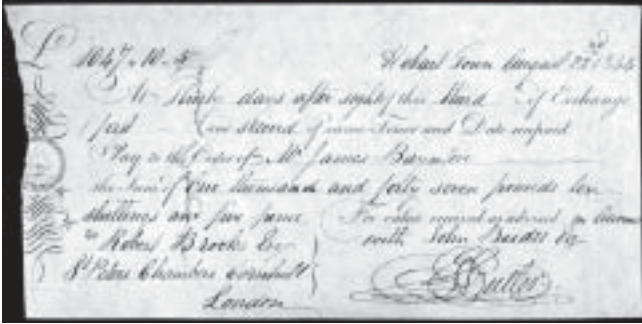 £ 1047.10.5 Hobart Town August 22nd
At days after sight of this third of Exchange
first and second of same Tenor and Date unpaid
Pay to the Order of Mr James
the Sum of One thousand and forty seven pounds ten
shillings and five pence For value received in
To Robert Brooks Esqr with John Esq
St Peters Chambers Cornhill
London Butler